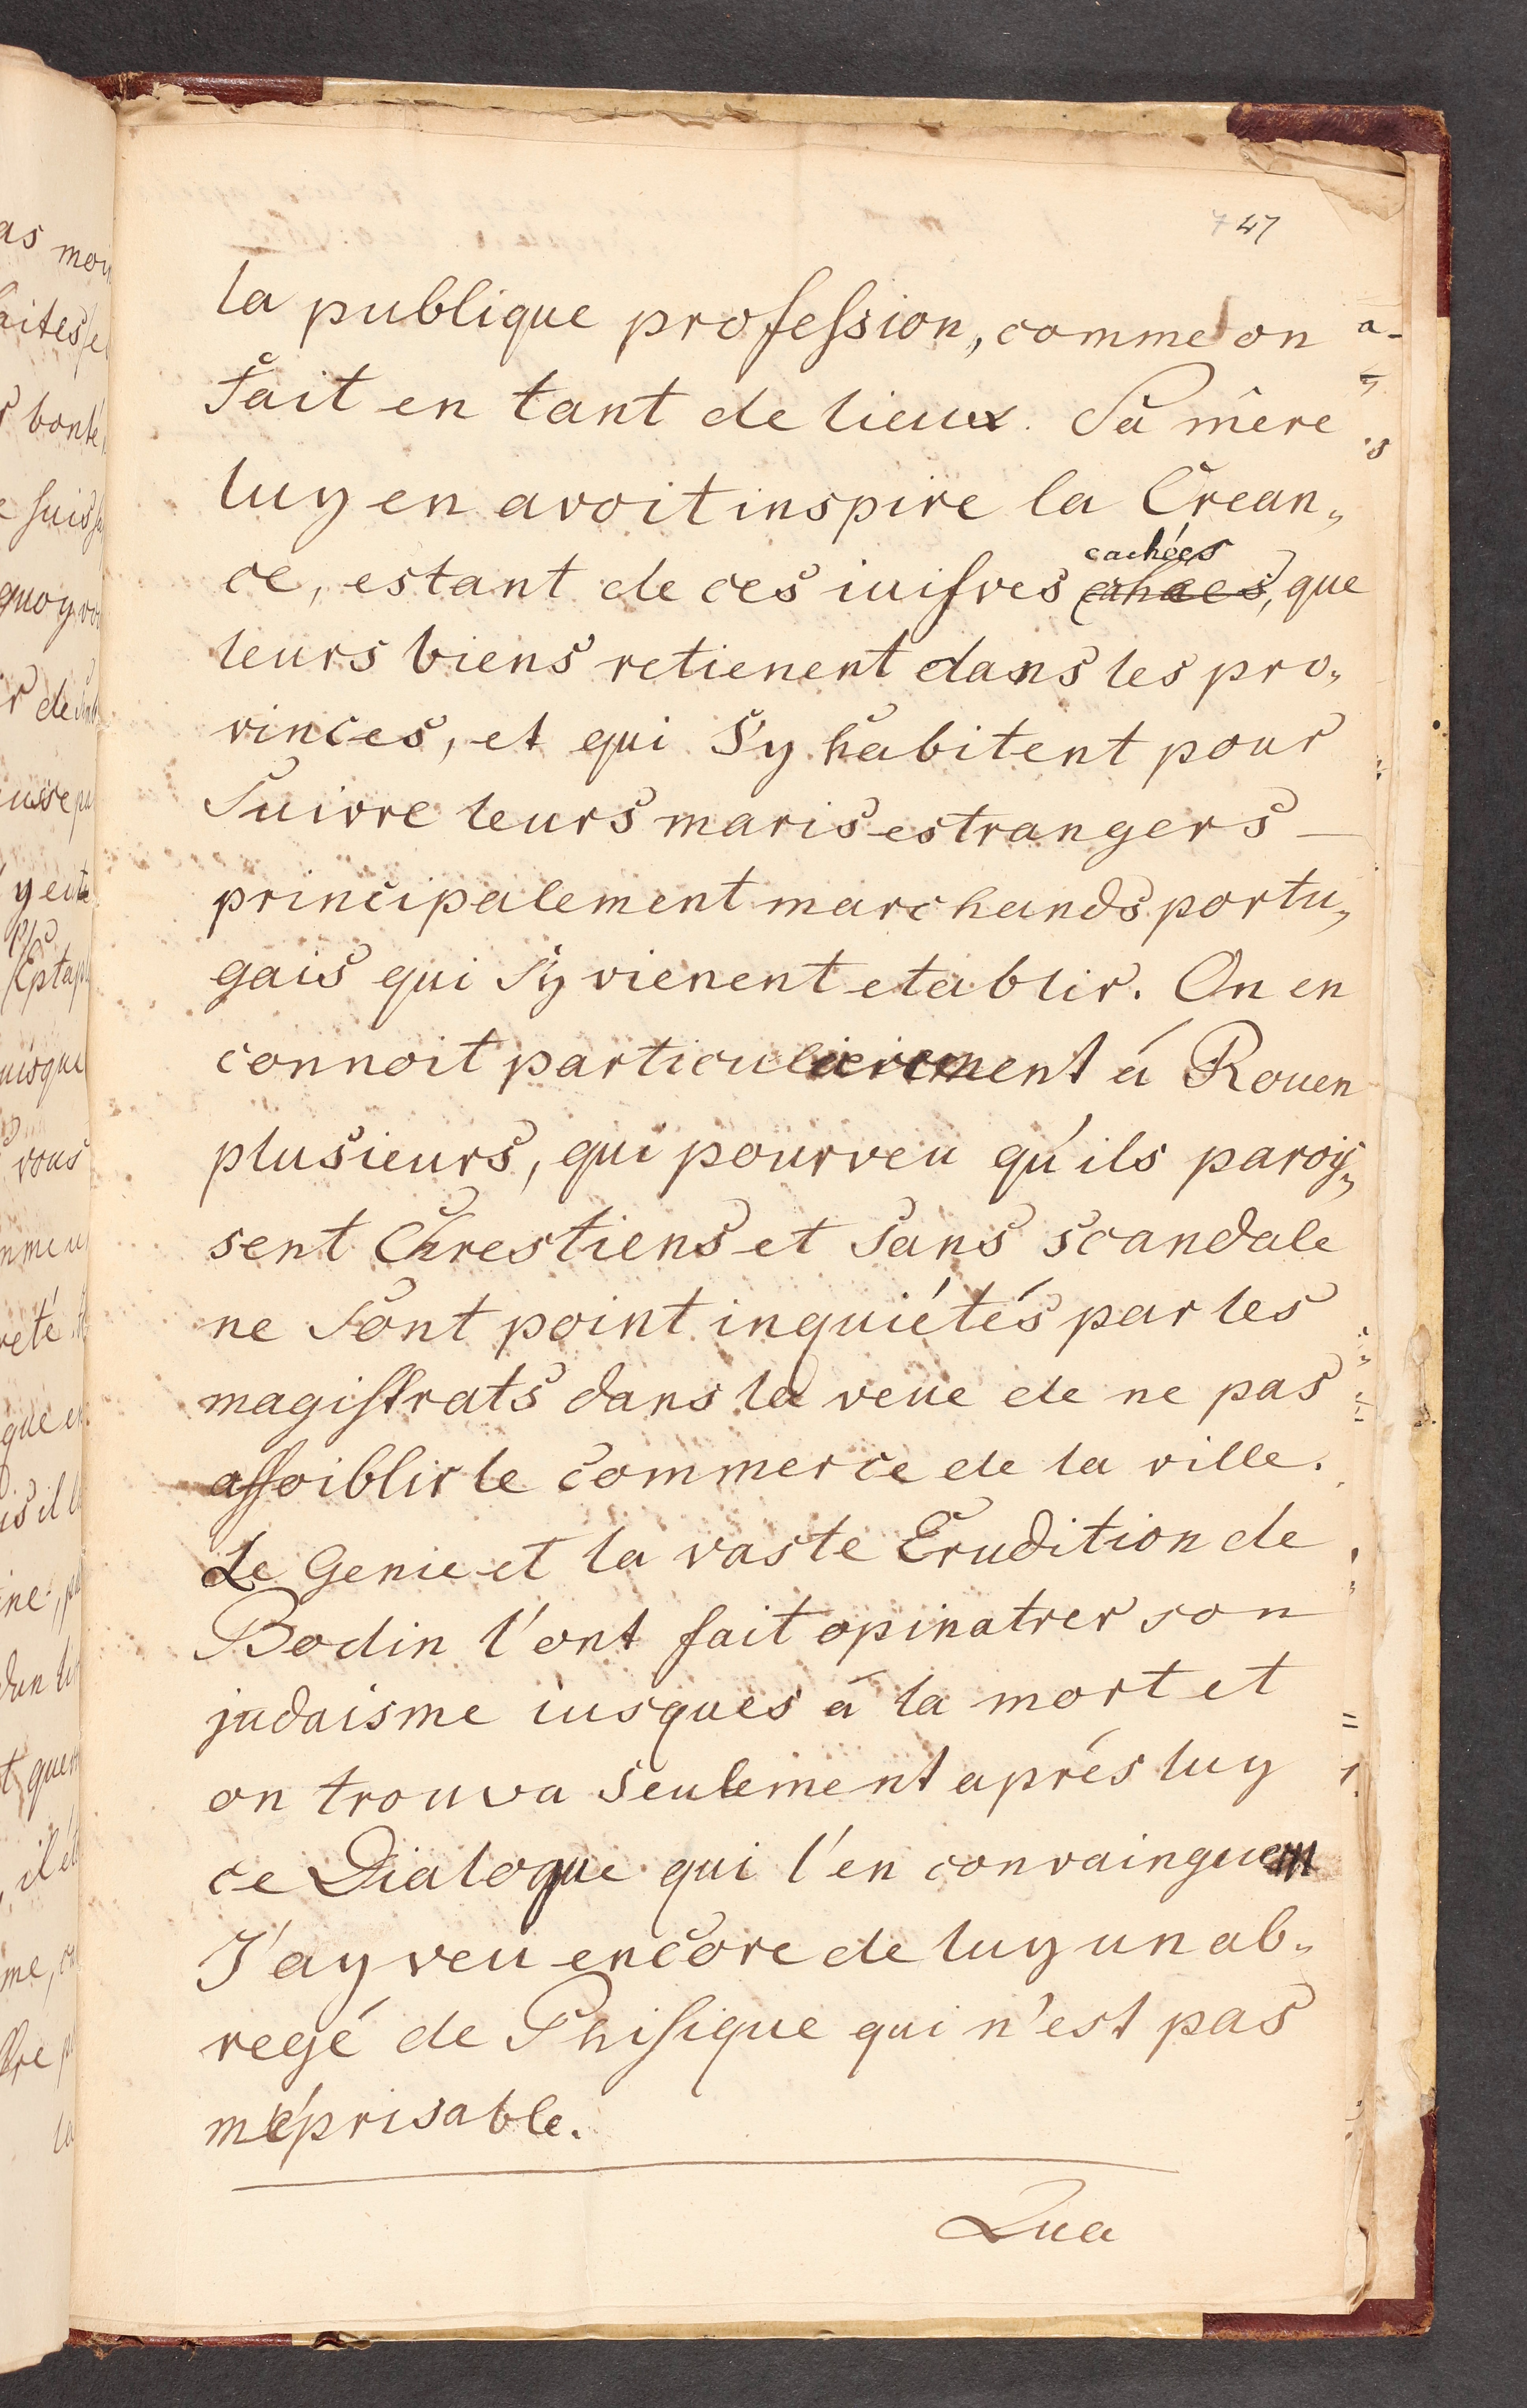 7 47
la publique profession, comme on
fait en tant de lieux. Sa mêre
luy en avoit inspire la Crean„
ce, estant de ces iuifves cachées, que
leurs biens retienent dans les pro„
vinces, et qui S'y habitent pour
Suivre leurs maris estrangers —
principalement marchands portu„
gais qui S'y vienent etablir. On en
connoit particulierement á Rouen
plusieurs, qui pourveu qu'ils parois„
sent Chrestiens et Sans scandale
ne Sont point inquiétés par les
magistrats dans la veue de ne pas
affoiblir le commerce de la ville.
Le Genie et la vaste Erudition de
Bodin l'ont fait opinatrer son
judaisme iusques á la mort et
on trouva Seulement aprés luy
ce Dialogue qui l'en convainquem
J'ay veu encore de luy un ab„
regé de Phisique qui n'est pas
méprisable.
Qua